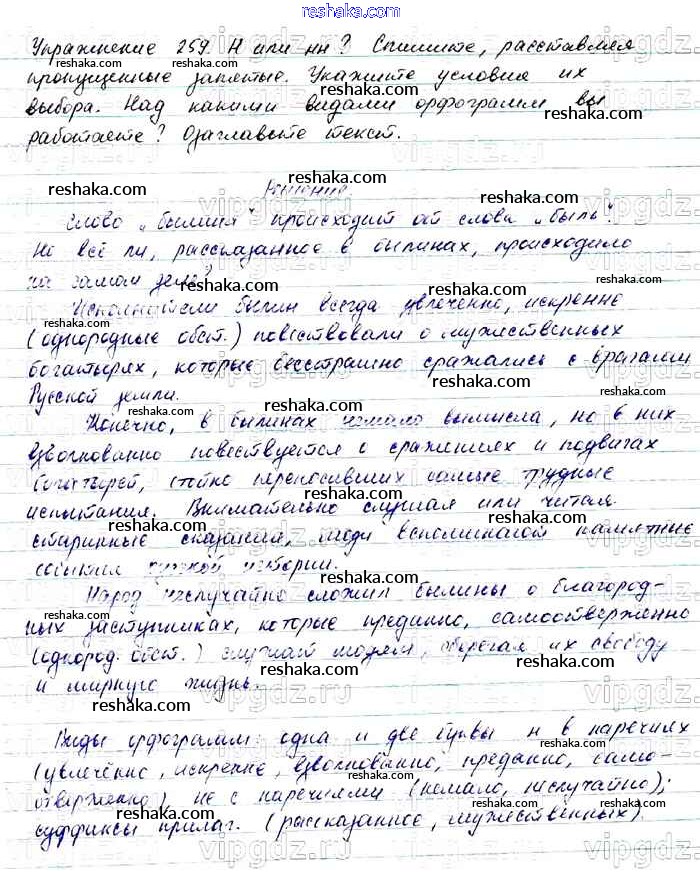 reshaka.com
Упражнение 259. Н или нн? Спишите, расставляя
пропущенные запятые. Укажите условия их
выбора. Над какими видами орфограмм вы
работаете? Озаглавьте текст.
Решение.
Слово „былина" происходит от слова „быль".
Но всё ли, рассказанное в былинах, происходило
на самом деле?
Исполнители былин всегда увлечённо, искренне
(однородные обст.) повествовали о мужественных
богатырях, которые бесстрашно сражались с врагами
Русской земли.
Конечно, в былинах немало вымысла, но в них
взволнованно повествуется о сражениях и подвигах
богатырей, стойко переносивших самые трудные
испытания. Внимательно слушая или читая
старинные сказания, люди вспоминают памятные
события русской истории.
Народ неслучайно сложил былины о благород-
ных заступниках, которые преданно, самоотверженно
(однород. обст.) служат людям, оберегая их свободу
и мирную жизнь.
Виды орфограмм: одна и две буквы н в наречиях
(увлечённо, искренне, взволнованно, преданно, само-
отверженно), не с наречиями (немало, неслучайно);
суффиксы прилаг. (рассказанное, мужественных).
reshaka.com